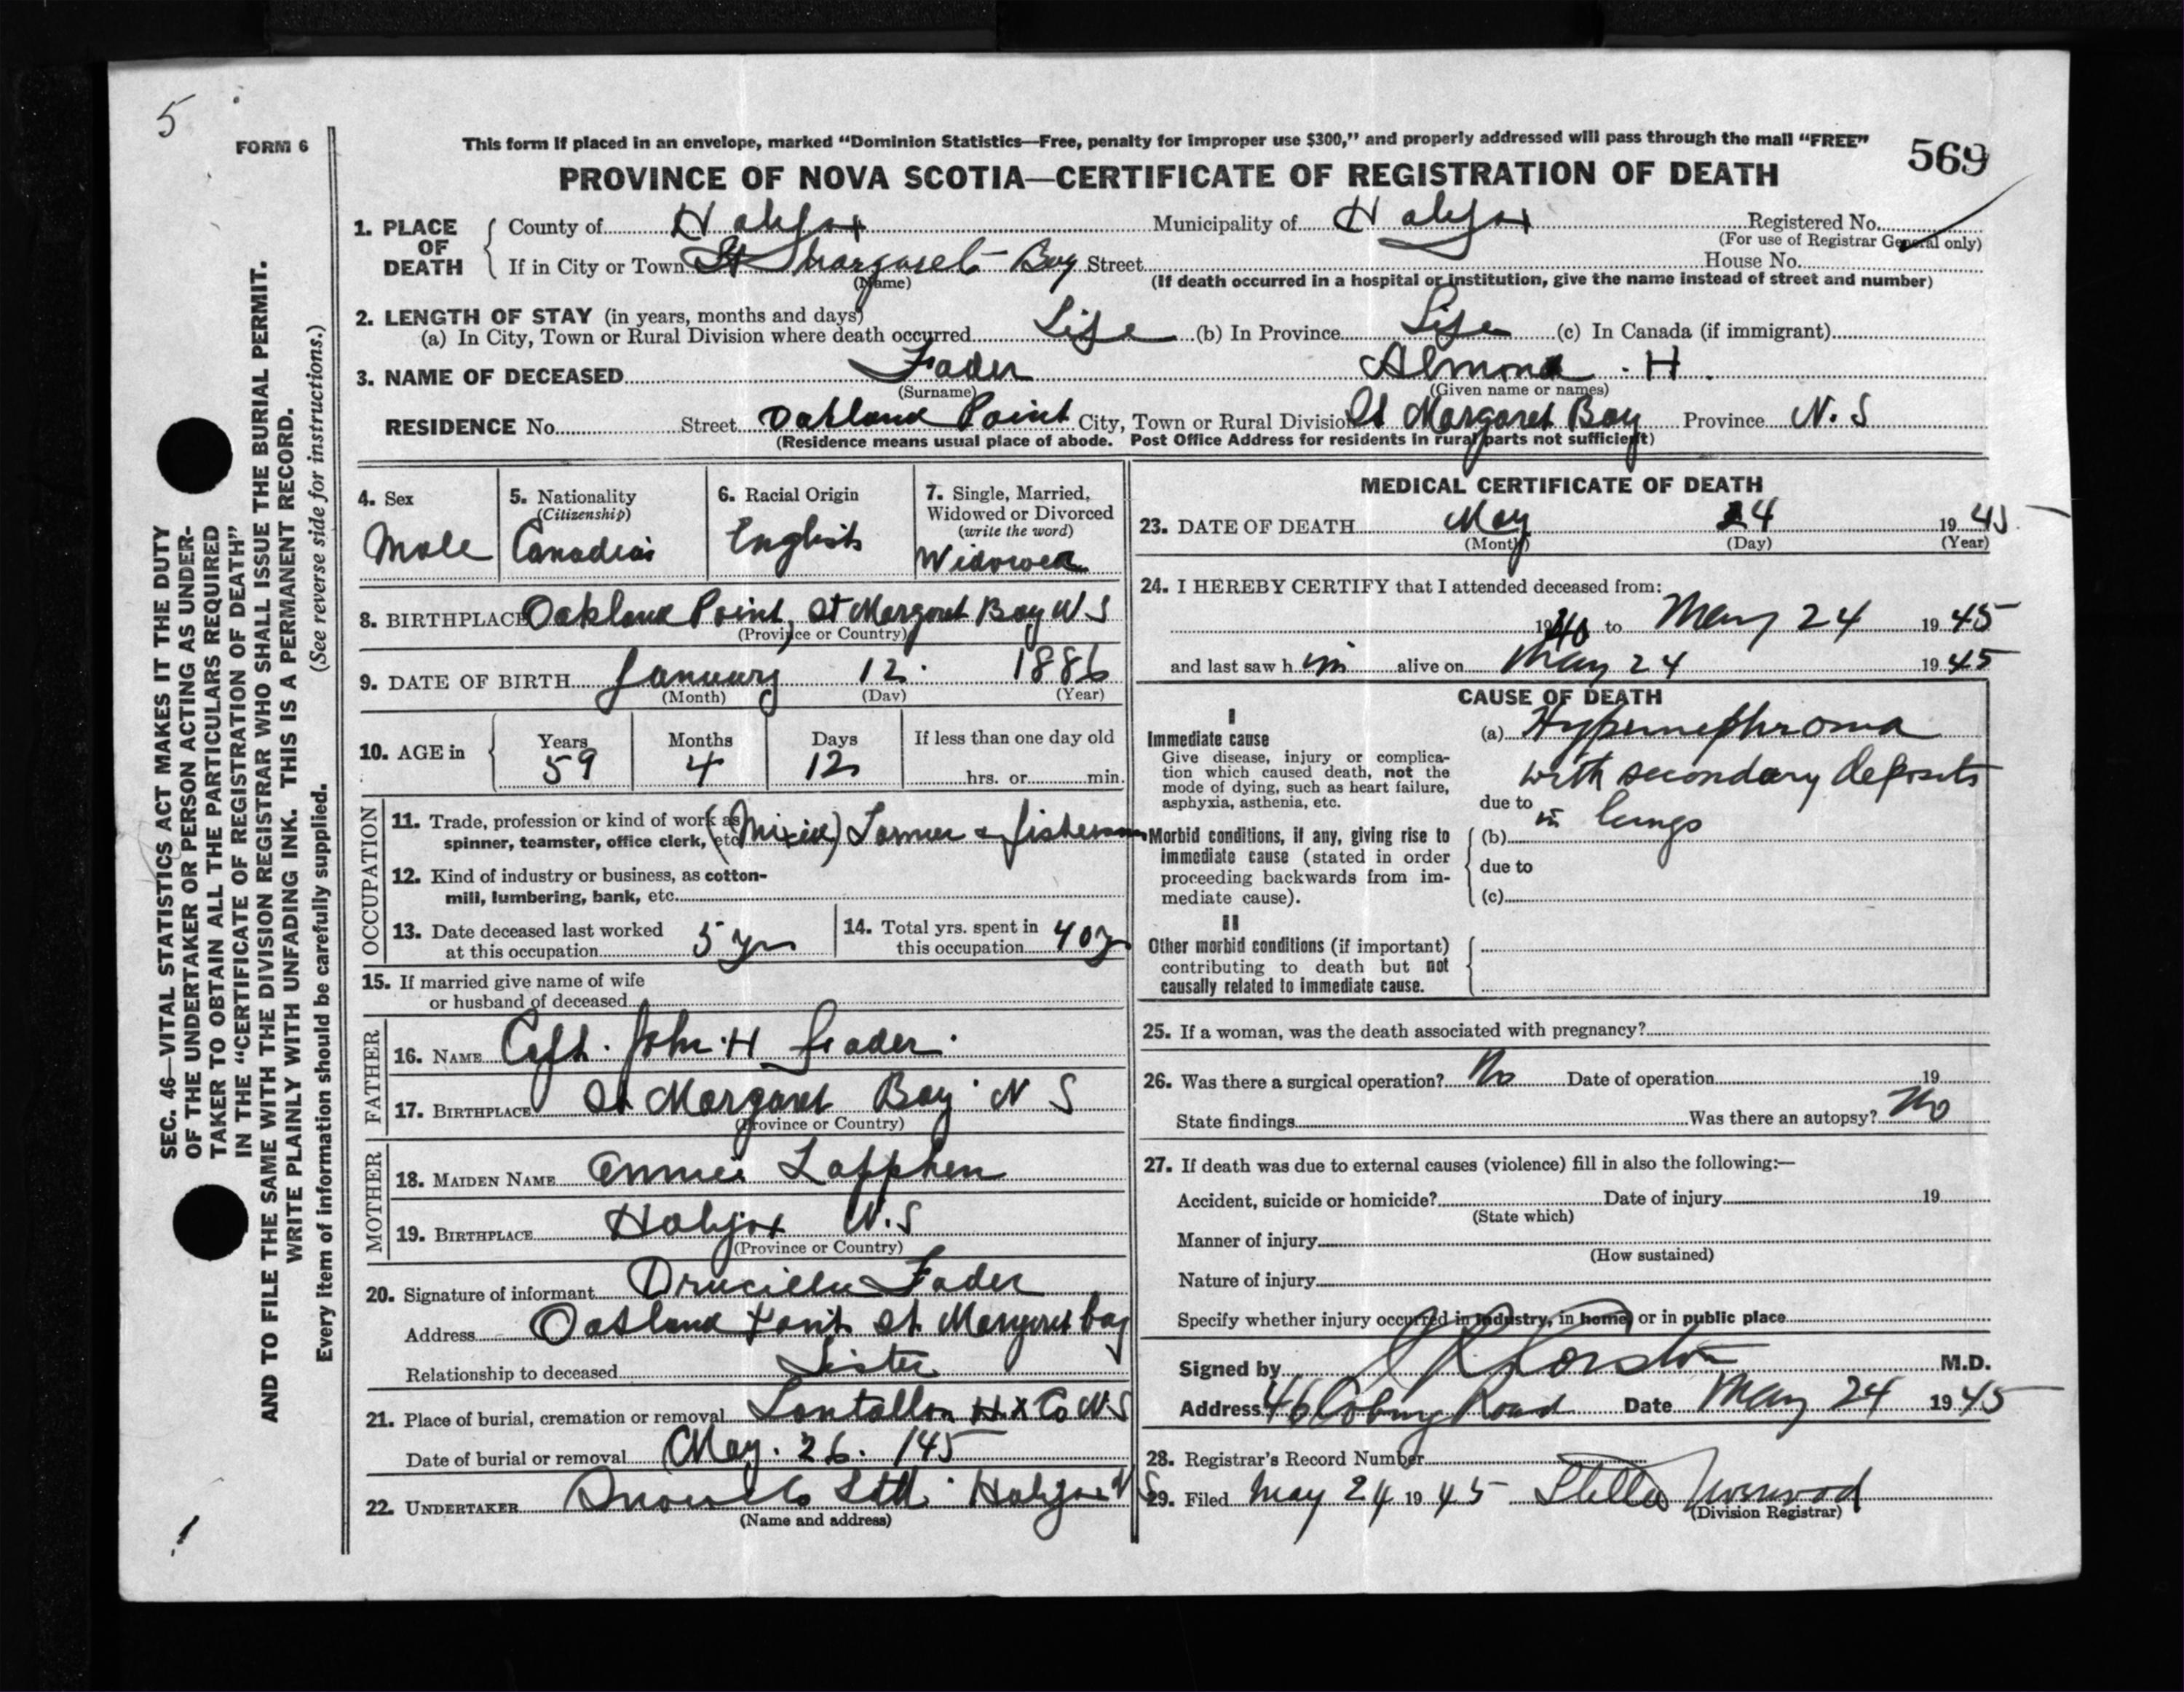 5
FORM 6
This form if placed in an envelope, marked “Dominion Statistics—Free, penalty for improper use $300,” and properly addressed will pass through the mail “FREE”
569
PROVINCE OF NOVA SCOTIA—CERTIFICATE OF REGISTRATION OF DEATH
1. PLACE OF DEATH
County of Halifax Municipality of Halifax Registered No.
(For use of Registrar General only)
If in City or Town St Margarets Bay Street House No.
(Name) (If death occurred in a hospital or institution, give the name instead of street and number)
2. LENGTH OF STAY (in years, months and days)
(a) In City, Town or Rural Division where death occurred Life (b) In Province Life (c) In Canada (if immigrant)
3. NAME OF DECEASED Fader Almond . H .
(Surname) (Given name or names)
RESIDENCE No. Street Oakland Point City, Town or Rural Division St Margaret Bay Province N. S
(Residence means usual place of abode. Post Office Address for residents in rural parts not sufficient)
4. Sex
Male
5. Nationality
(Citizenship)
Canadian
6. Racial Origin
English
7. Single, Married, Widowed or Divorced
(write the word)
Widowed
8. BIRTHPLACE Oakland Point, St Margaret Bay N S
(Province or Country)
9. DATE OF BIRTH January 12 1886
(Month) (Day) (Year)
10. AGE in
Years Months Days If less than one day old
59 4 12 hrs. or min.
OCCUPATION
11. Trade, profession or kind of work as (Mixed) Farmer & fisherman
spinner, teamster, office clerk, etc
12. Kind of industry or business, as cotton-
mill, lumbering, bank, etc.
13. Date deceased last worked
at this occupation 5 yr
14. Total yrs. spent in
this occupation 40 y
15. If married give name of wife
or husband of deceased
FATHER
16. NAME Capt. John . H Fader .
17. BIRTHPLACE St Margaret Bay N S
(Province or Country)
MOTHER
18. MAIDEN NAME Annie
19. BIRTHPLACE Halifax N. S
(Province or Country)
20. Signature of informant Drucilla Fader
Address Oakland Point St Margaret bay
Relationship to deceased Sister
21. Place of burial, cremation or removal Tantallon Hx Co N S
Date of burial or removal May. 26. 145
22. UNDERTAKER Snow Co Ltd. Halifax N S
(Name and address)
MEDICAL CERTIFICATE OF DEATH
23. DATE OF DEATH May 24 1945
(Month) (Day) (Year)
24. I HEREBY CERTIFY that I attended deceased from:
1940 to May 24 1945
and last saw him alive on May 24 1945
CAUSE OF DEATH
I
Immediate cause
Give disease, injury or complica-
tion which caused death, not the
mode of dying, such as heart failure,
asphyxia, asthenia, etc.
(a) Hypernephroma
with secondary deposits
due to
in lungs
Morbid conditions, if any, giving rise to
immediate cause (stated in order
proceeding backwards from im-
mediate cause).
(b)
due to
(c)
II
Other morbid conditions (if important)
contributing to death but not
causally related to immediate cause.
25. If a woman, was the death associated with pregnancy?
26. Was there a surgical operation? No Date of operation 19
State findings Was there an autopsy? No
27. If death was due to external causes (violence) fill in also the following:—
Accident, suicide or homicide? Date of injury 19
(State which)
Manner of injury
(How sustained)
Nature of injury
Specify whether injury occurred in industry, in home, or in public place
Signed by M.D.
Address 46 Coburg Road Date May 24 1945
28. Registrar's Record Number
29. Filed May 24 1945 Stella Norwood
(Division Registrar)
SEC. 46—VITAL STATISTICS ACT MAKES IT THE DUTY
OF THE UNDERTAKER OR PERSON ACTING AS UNDER-
TAKER TO OBTAIN ALL THE PARTICULARS REQUIRED
IN THE “CERTIFICATE OF REGISTRATION OF DEATH”
AND TO FILE THE SAME WITH THE DIVISION REGISTRAR WHO SHALL ISSUE THE BURIAL PERMIT.
WRITE PLAINLY WITH UNFADING INK. THIS IS A PERMANENT RECORD.
Every item of information should be carefully supplied. (See reverse side for instructions.)